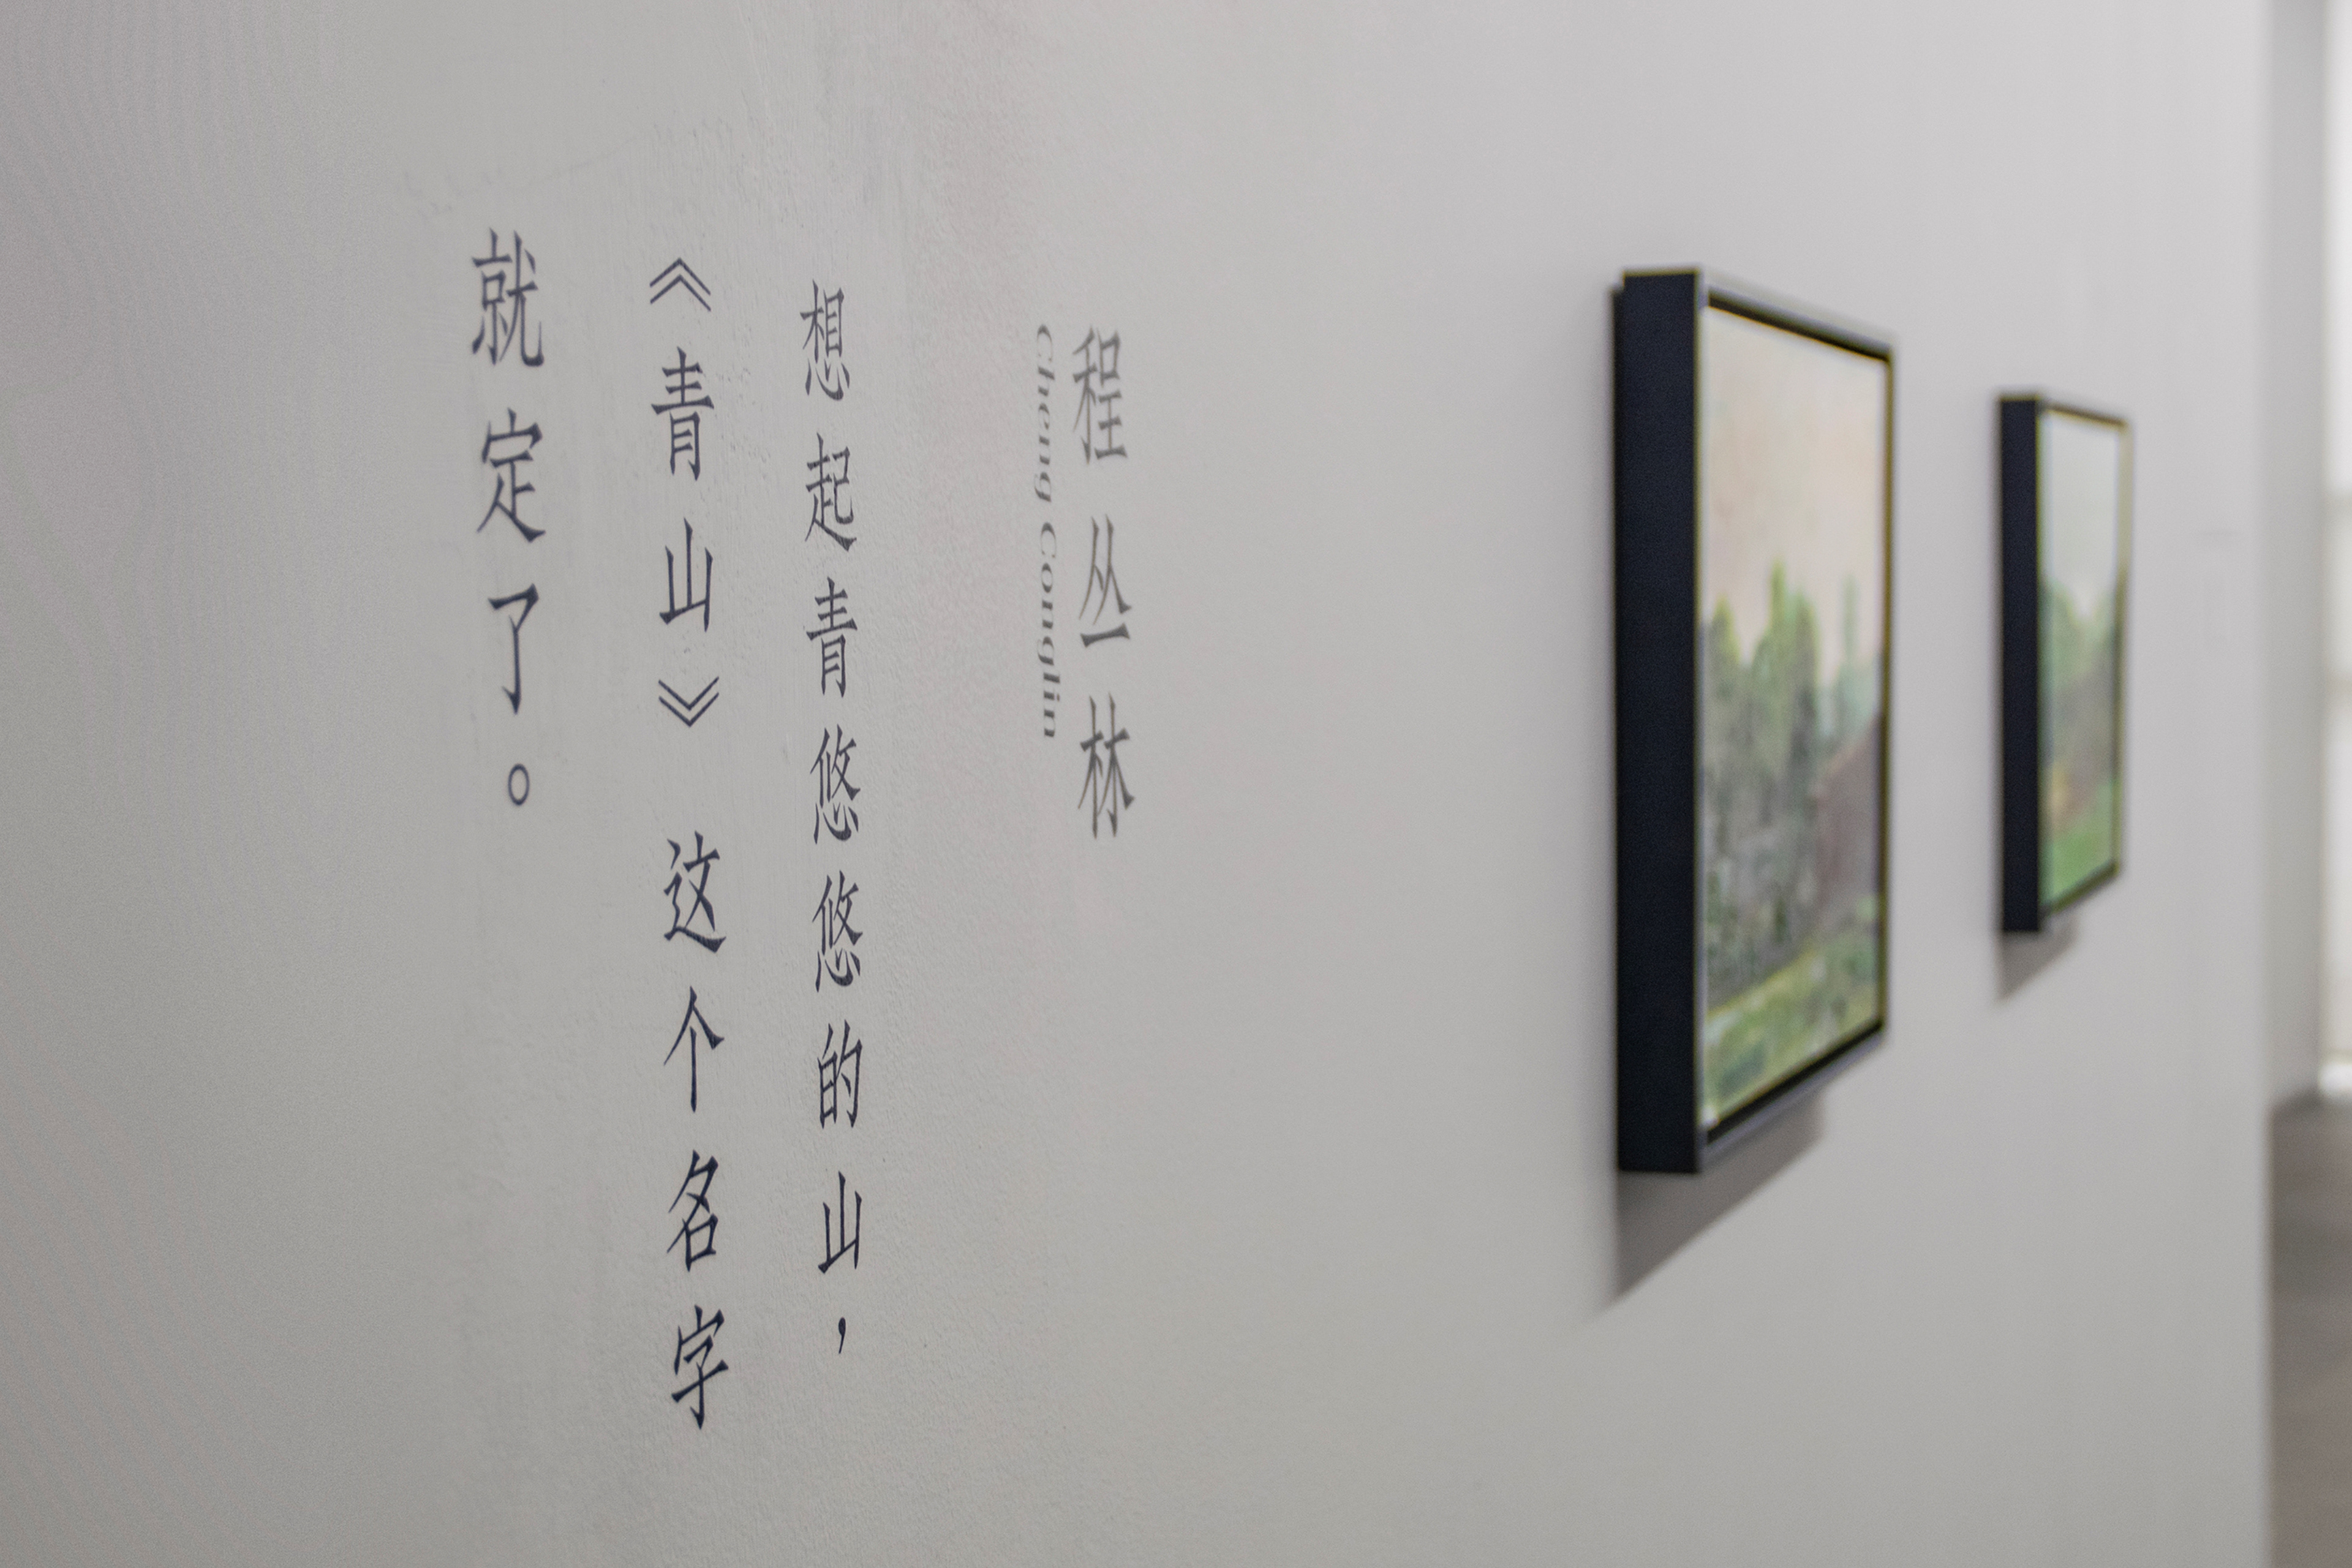 程丛林
Cheng Conglin
想起青悠悠的山，
《青山》这个名字
就定了。